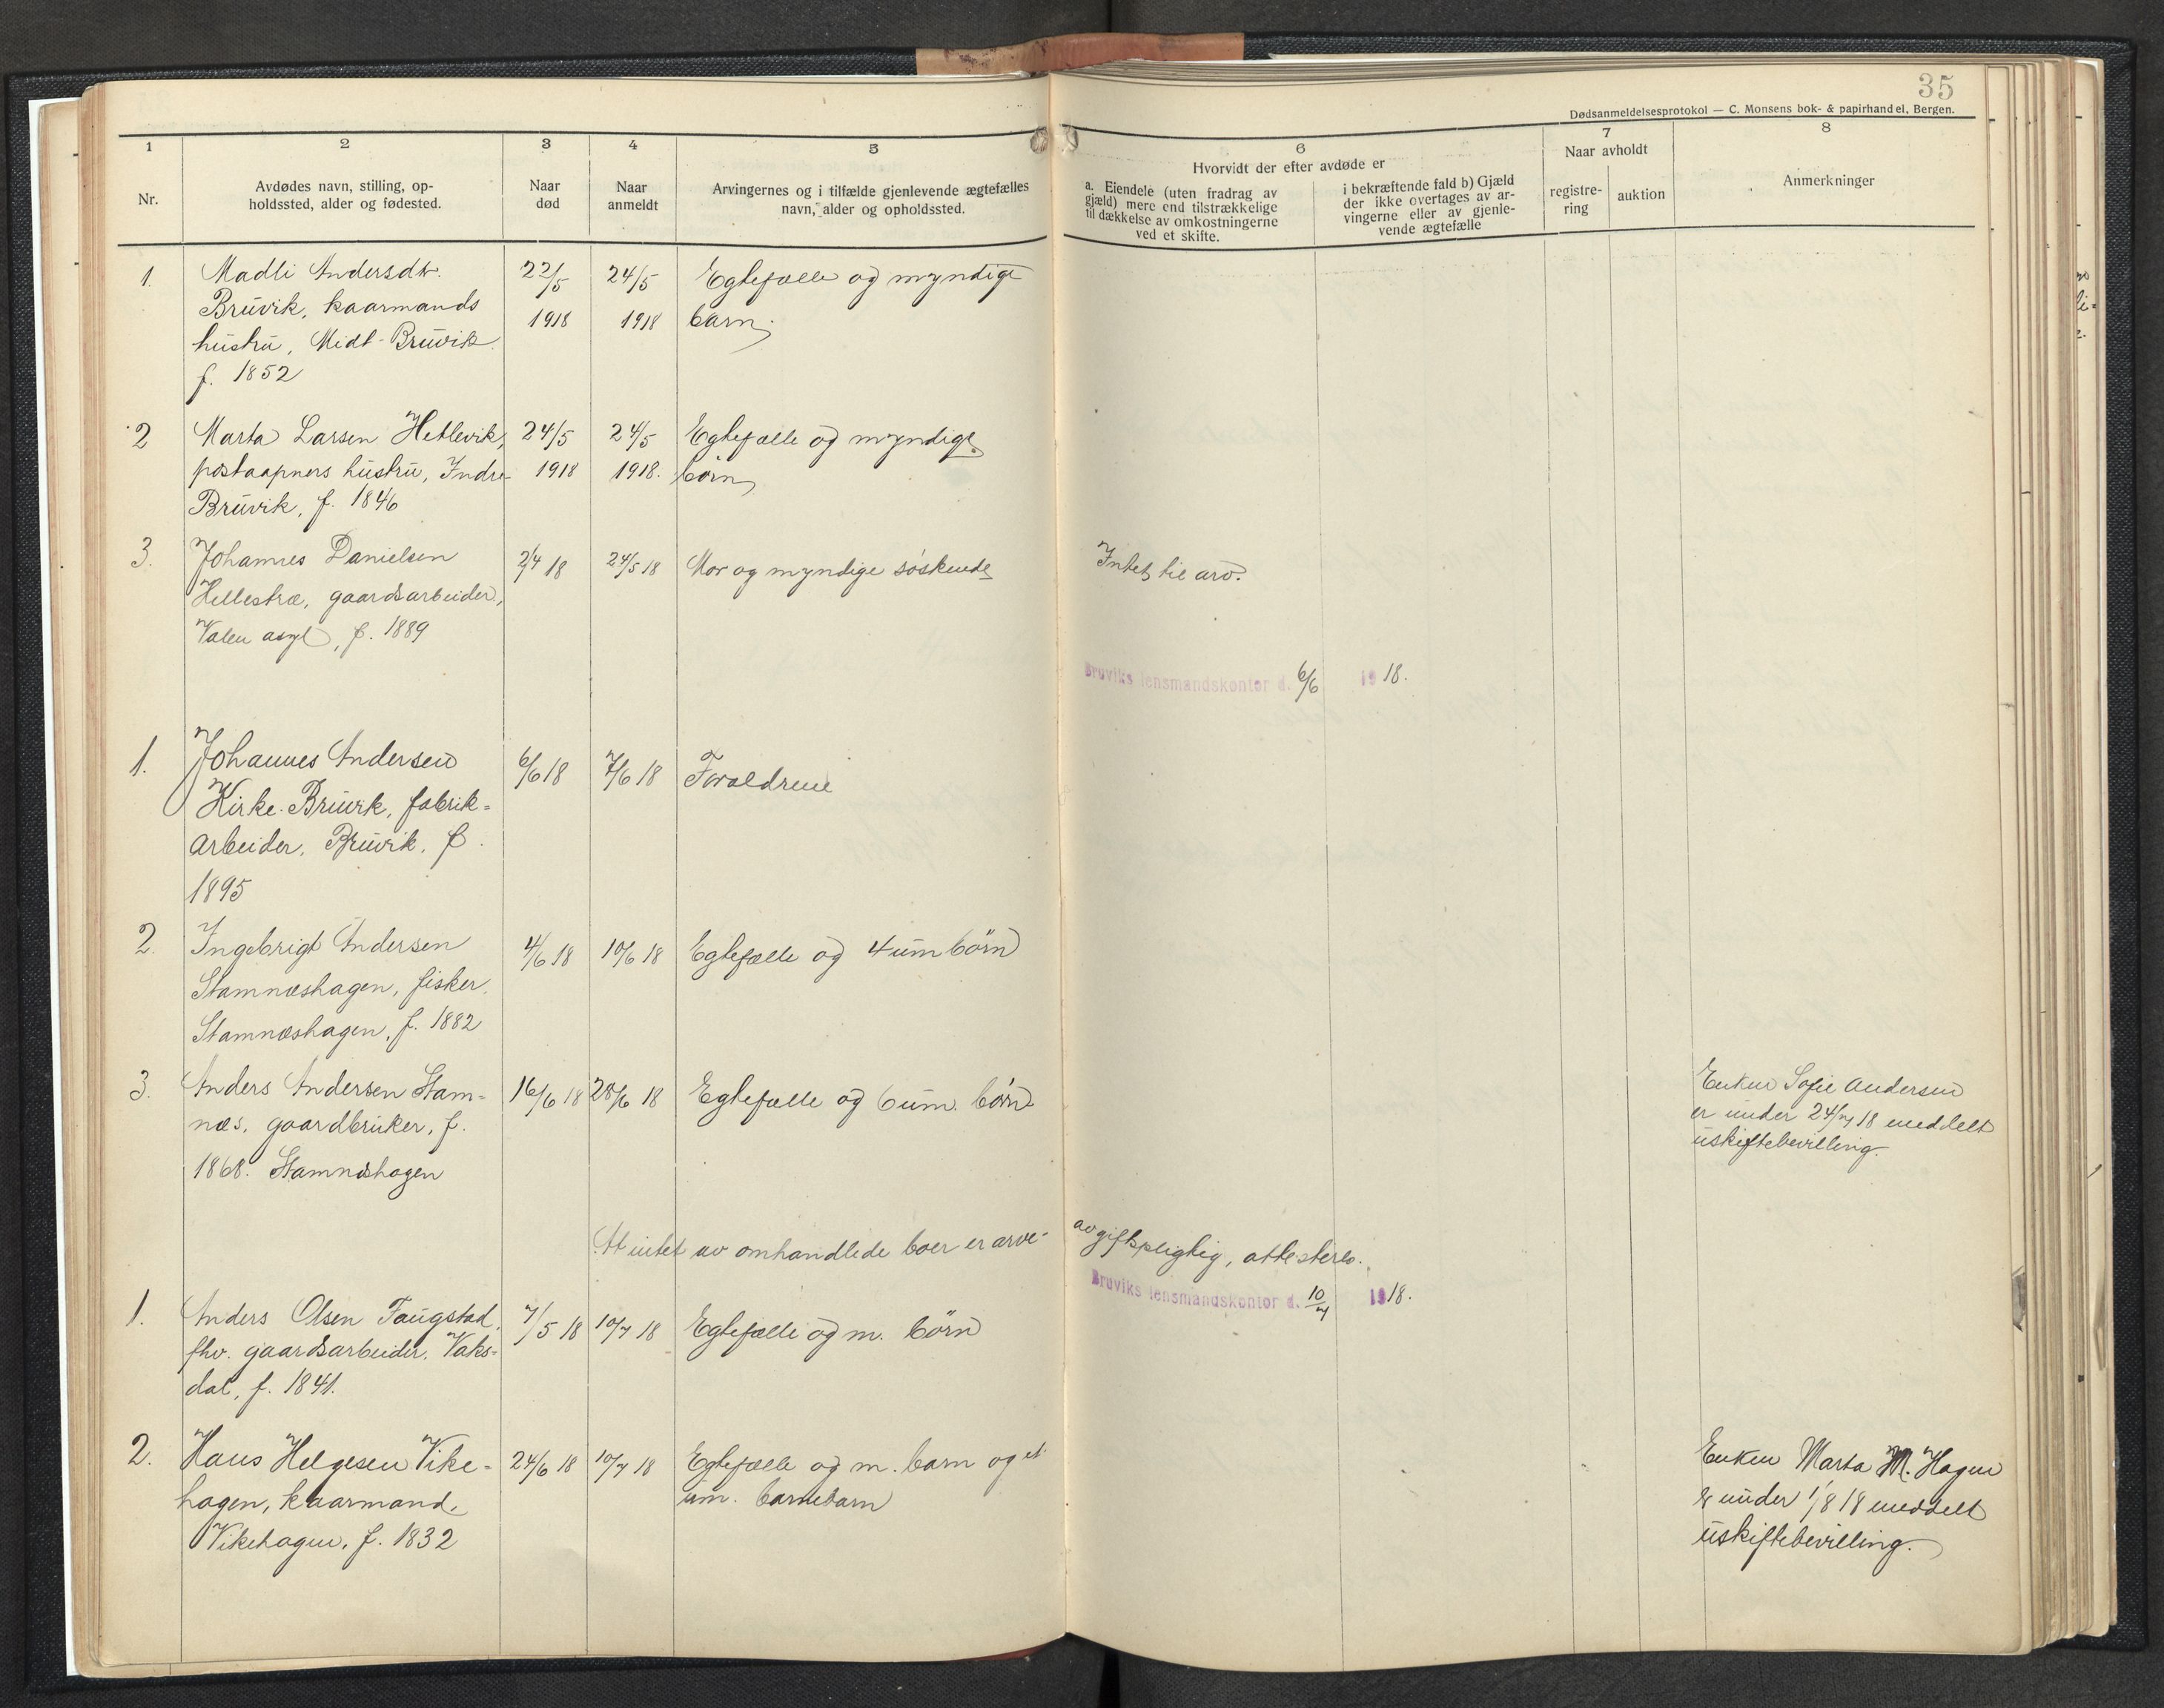 35
Dødsanmeldelsesprotokol — C. Monsens bok- & papirhandel, Bergen.
1 2 3 4 5 6 7 8
Nr.
Avdødes navn, stilling, op-
holdssted, alder og fødested.
Naar
død
Naar
anmeldt
Arvingernes og i tilfælde gjenlevende ægtefælles
navn, alder og opholdssted.
Hvorvidt der efter avdøde er
a. Eiendele (uten fradrag av
gjæld) mere end tilstrækkelige
til dækkelse av omkostningerne
ved et skifte.
i bekræftende fald b) Gjæld
der ikke overtages av ar-
vingerne eller av gjenle-
vende ægtefælle
Naar avholdt
registre-
ring
auktion
Anmerkninger
1. Madli Andersdtr. 22/5 24/5 Egtefælle og myndige
Bruvik, kaarmands 1918 1918 barn.
hustru, Midt-Bruvik.
f. 1852
2 Marta Larsen Hetlevik, 24/5 24/5 Egtefælle og myndige
postaapners hustru, Indre 1918 1918. børn
Bruvik, f. 1846
3. Johannes Danielsen 2/4 18 24/5 18 Mor og myndige søskende Intet til arv.
Hellestræ, gaardsarbeider,
Valen asyl, f. 1889
Bruviks lensmandskontor d. 6/6 1918.
1. Johannes Andersen 6/6 18 7/6 18 Forældrene
Kirke-Bruvik, fabrik-
arbeider, Bruvik, f.
1895
2. Ingebrigt Andersen 4/6 18 10/6 18 Egtefælle og 4 um børn
Stamnæshagen, fisker.
Stamnæshagen, f. 1882
3. Anders Andersen Stam- 16/6 18 28/6 18 Egtefælle og 6 um. børn Enken Sofie Andersen
næs, gaardbruker, f. er under 24/7 18 meddelt
1868. Stamneshagen uskiftebevilling.
At intet av omhandlede boer er arve-avgiftspligtig, attesteres.
Bruviks lensmandskontor d. 10/7 1918.
1. Anders Olsen Faugstad, 7/5 18 10/7 18 Egtefælle og m. børn
fhv. gaardsarbeider. Vaks-
dal, f. 1841.
2. Hans Helgesen Vike- 24/6 18 10/7 18 Egtefælle og m. barn og et Enken Marta M. Hagen
hagen, kaarmand, um. barnebarn er under 1/8 18 meddelt
Vikehagen, f. 1832 uskiftebevilling.